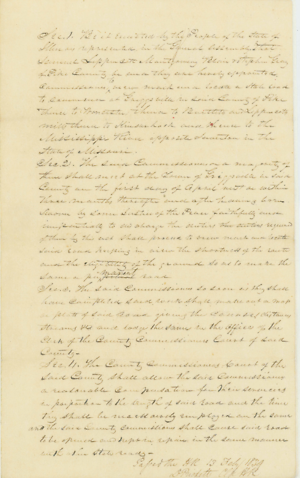 Sec. 1. Be it enacted by the People of the State of
as represented in the General Assembly That
Samuel Montgomery Blair & Stephen Gay
of Pike County be and they are hereby appointed
Commissioners to view mark and locate a State road
to commence at in said County of Pike
thence to thence to
thence to and thence to the
Mississippi River opposite in the
State of Missouri
Sec. 2. The said Commissioners or a majority of
them shall meet at the Town of in said
County on the first day of April next or within
three months thereafter and after having been
Sworn by some Justice of the Peace faithfully and
impartially to discharge the duties required
of them by this act shall proceed to view mark and locate
said road keeping in view the shortness of the route
and the of the ground so as to make the
same a permanent road
Sec. 3. The said Commissioners so soon as they shall
have completed said work shall make out a map
or plat of said Road giving the distances
and lodge the same in the Office of the
Clerk of the County Commissioners Court of said
County
Sec. 4. The County Commissioners Court of the
said County shall allow the said Commissioners
a reasonable compensation for their services
in proportion to the length of said road and the time
they shall be necessarily employed on the same
and the said County Commissioners shall cause said road
to be opened and kept in repair in the same manner
with other State roads
Passed the H.R. 13 Feby 1839